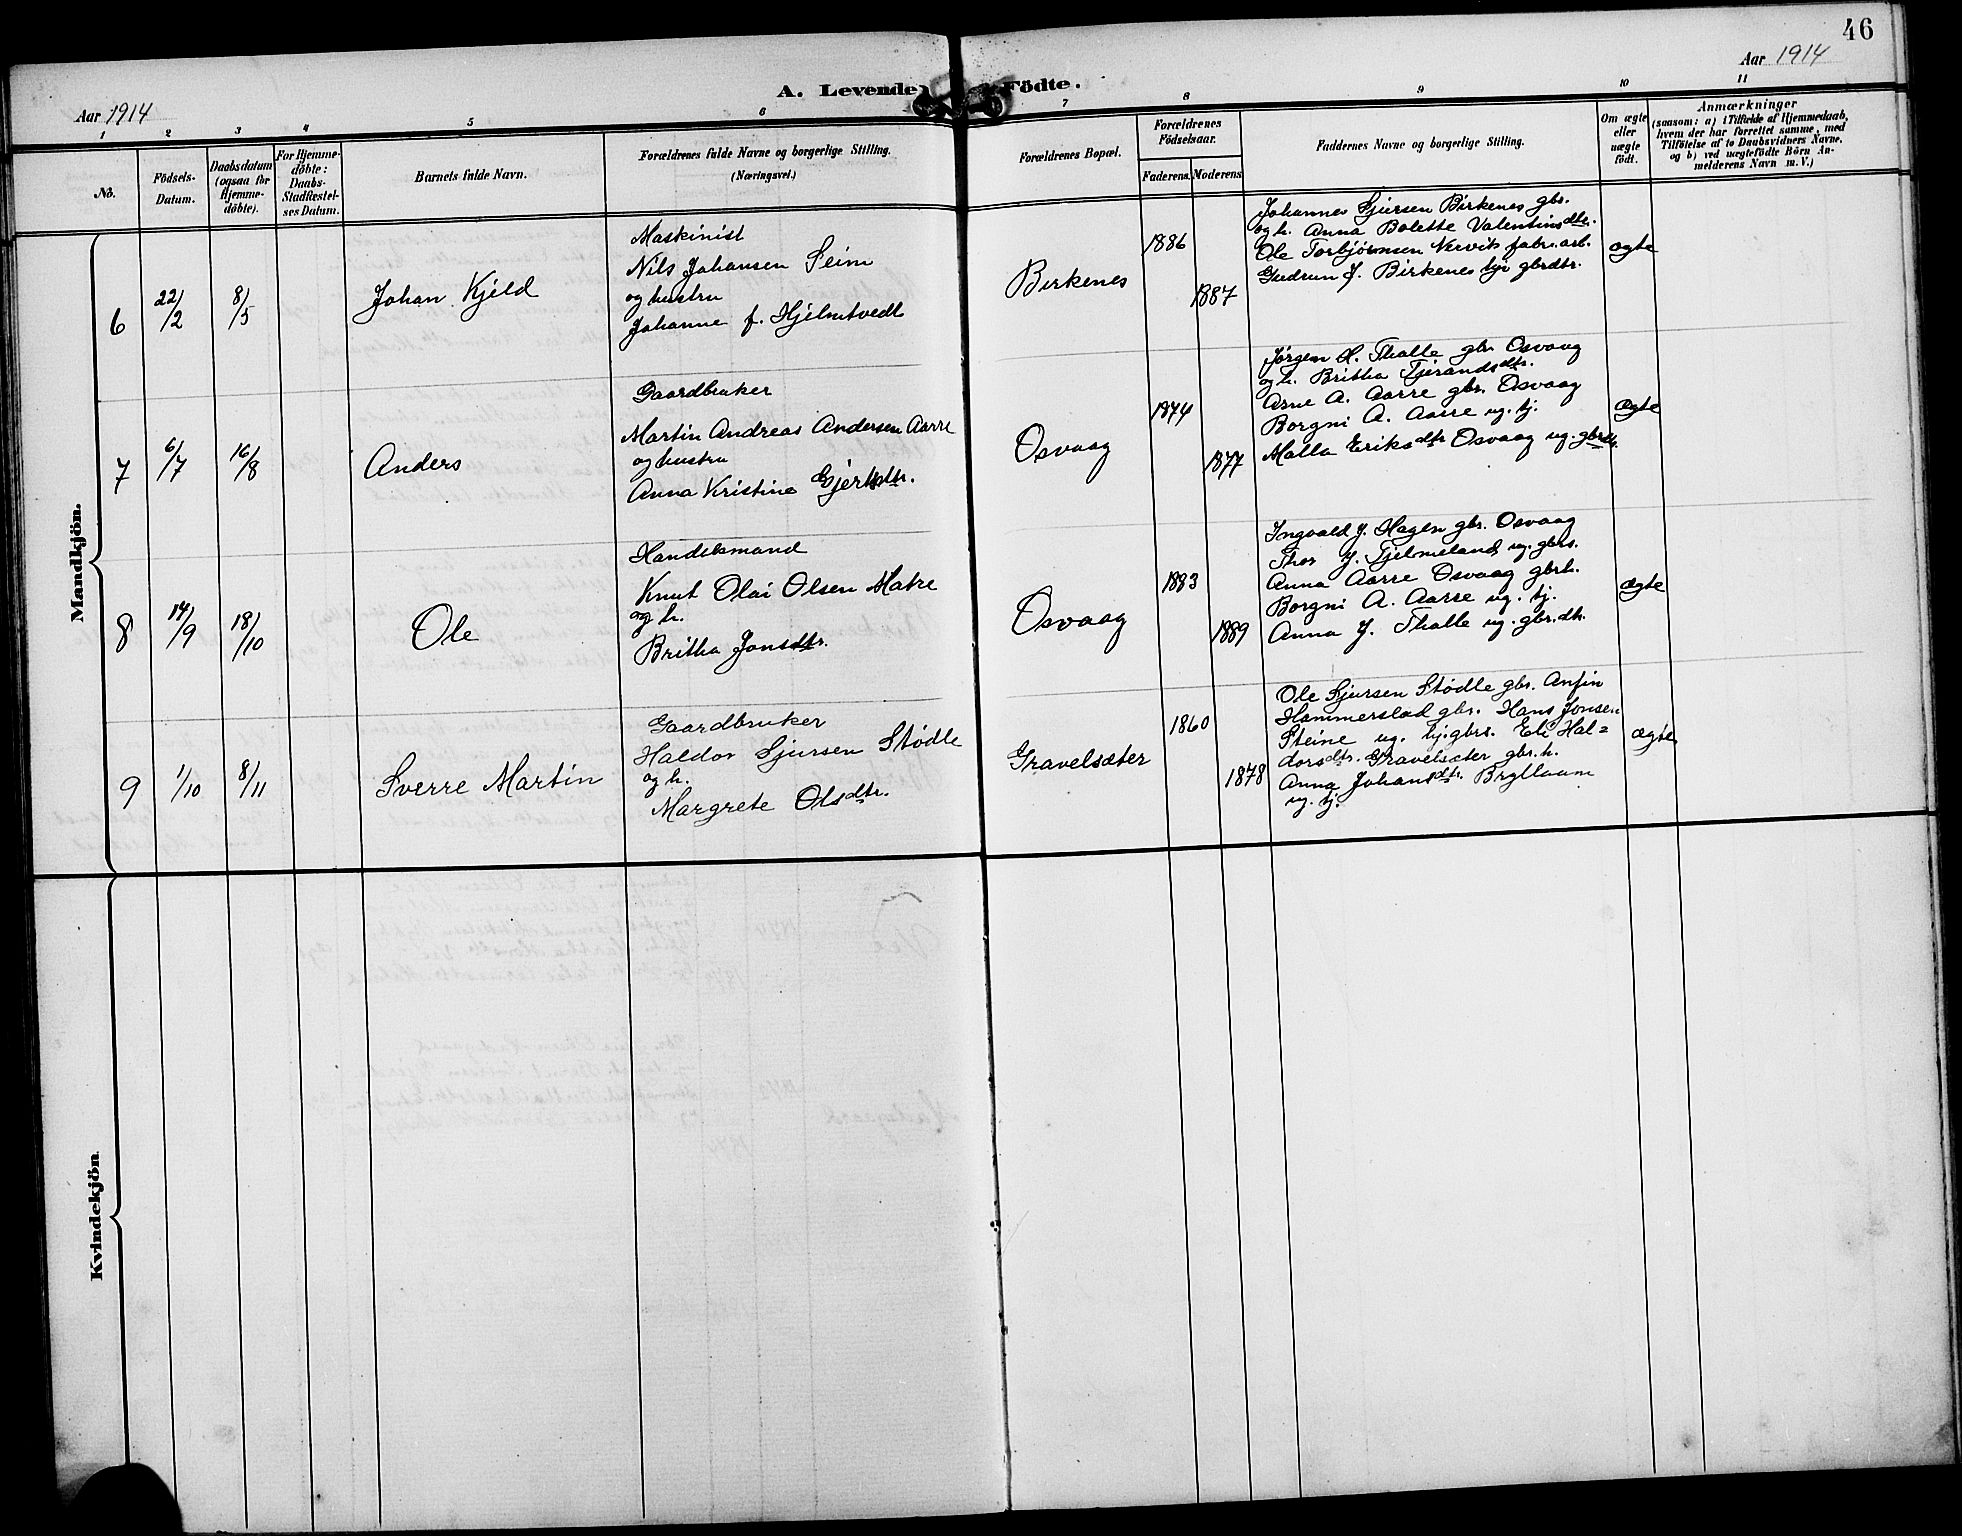 46
Aar 1914
A. Levende Födte.
Aar 1914
1 2 3 4 5 6 7 8 9 10 11
No.
Födsels-
Datum.
Daabsdatum
(ogsaa for
Hjemme-
döbte).
For Hjemme-
döbte:
Daabs-
Stadfæstel-
ses Datum.
Barnets fulde Navn.
Forældrenes fulde Navne og borgerlige Stilling.
(Næringsvei.)
Forældrenes Bopæl.
Forældrenes
Födselsaar.
Faderens. Moderens
Faddernes Navne og borgerlige Stilling.
Om ægte
eller
uægte
födt.
Anmærkninger
(saasom: a) i Tilfælde af Hjemmedaab,
hvem der har forrettet samme, med
Tilföielse af to Daabsvidners Navne,
og b) ved uægtefödte Börn An-
melderens Navn m. V.)
Mandkjön.
6
22/2
8/5
Johan Kjeld
Maskinist
Nils Johansen Seim
og hustru
Johanne f. Hjelmtvedt
Birkenes
1886
1887
Johannes Sjursen Birkenes gbr.
og h. Anna Bolette Valentinsdtr.
Ole Torbjörnsen Nervik fabr.arb.
Gudrun J. Birkenes gbrdtr.
ægte
7
6/7
16/8
Anders
Gaardbruker
Martin Andreas Andersen Aarre
og hustru
Anna Kristine Gjertsdtr.
Osvaag
1874
1877
Jørgen H. Thalle gbr. Osvaag
og h. Britha Tjerandsdtr.
Arne A. Aarre gbr. Osvaag
Borgni A. Aarre ug. tj.
Malla Eriksdtr Osvaag ug. gbrdtr.
ægte
8
14/9
18/10
Ole
Handelsmand
Knut Olai Olsen Matre
og h.
Britha Jonsdtr.
Osvaag
1883
1889
Ingvald J. Hagen gbr. Osvaag
Thor J. Tjelmeland ug. gbrs.
Anna Aarre Osvaag gbrh.
Borgni A. Aarre ug. tj.
Anna J. Thalle ug. gbr.dtr.
ægte
9
1/10
8/11
Sverre Martin
Gaardbruker
Haldor Sjursen Stødle
og h.
Margrete Olsdtr.
Gravelsæter
1860
1878
Ole Sjursen Stødle gbr. Anfin
Hammerstad gbr. Hans Jonsen
Steine ug. tj. gbrs. Eli Hal=
dorsdtr. Gravelsæter gbr.h.
Anna Johansdtr. Bryllaum
ug. tj.
ægte
Kvindekjön.